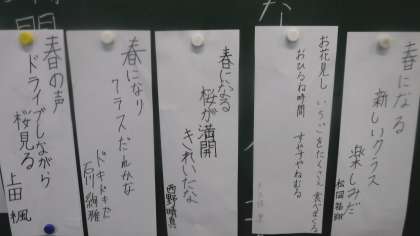 春になる
新しいクラス
楽しみだ
お花見し いちごをたくさん食べまくる
おひるね時間
すやすやねむる
春になる
桜が満開
きれいだな
西野
春になり
クラスだれかな
ドキドキだ
石川
春の声
ドライブしながら
桜見る
上田 楓